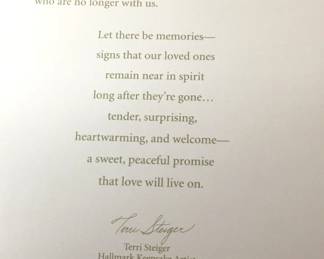 who are no longer with us.
Let there be memories—
signs that our loved ones
remain near in spirit
long after they're gone…
tender, surprising,
heartwarming, and welcome—
a sweet, peaceful promise
that love will live on.
Terri Steiger
Terri Steiger
Hallmark Keepsake Artist